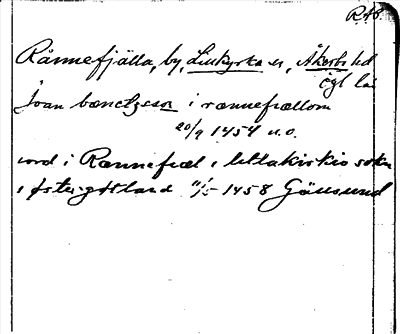 RAB.
Rännefjälla, by, Linkyrka sn, Åkerbo hd
Ögl län
Joan bænctzson i rænnefiællom
20/9 1454 u.o.
iord i Rænnefiæl i lillakirkio sokn
i østergøtland 11/5 1458 Gäusund